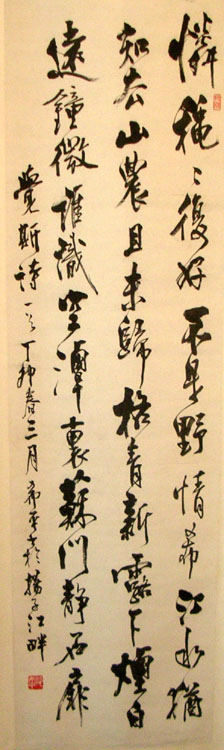 憐穫〻復好不是野情希江水猶
知去山農且未歸格青新露下煙白
遠鐘微誰識空潭裏蘇門靜石扉
覺斯詩一首丁卯春三月希平書於揚子江畔